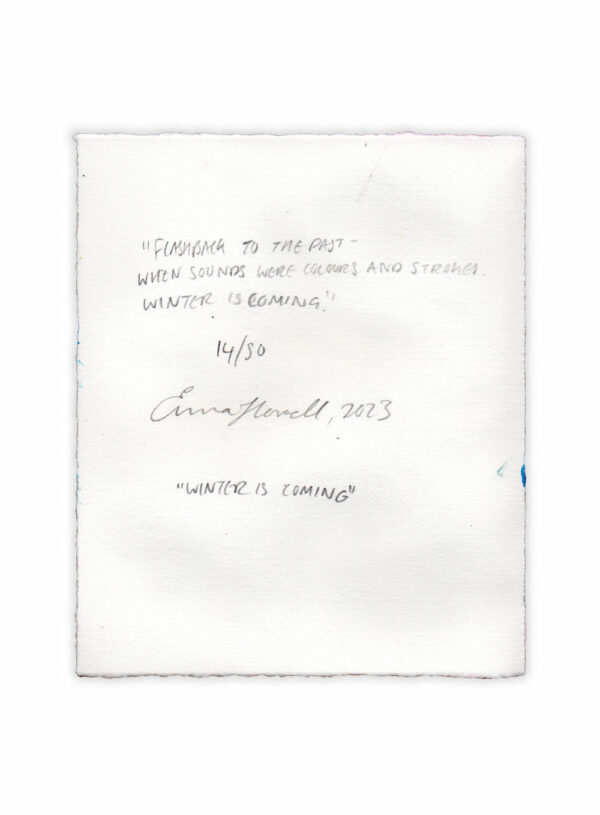 "FLASHBACK TO THE PAST -
WHEN SOUNDS WERE COLOURS AND STROKES.
WINTER IS COMING."
14/50
Emma Howell, 2023
"WINTER IS COMING"